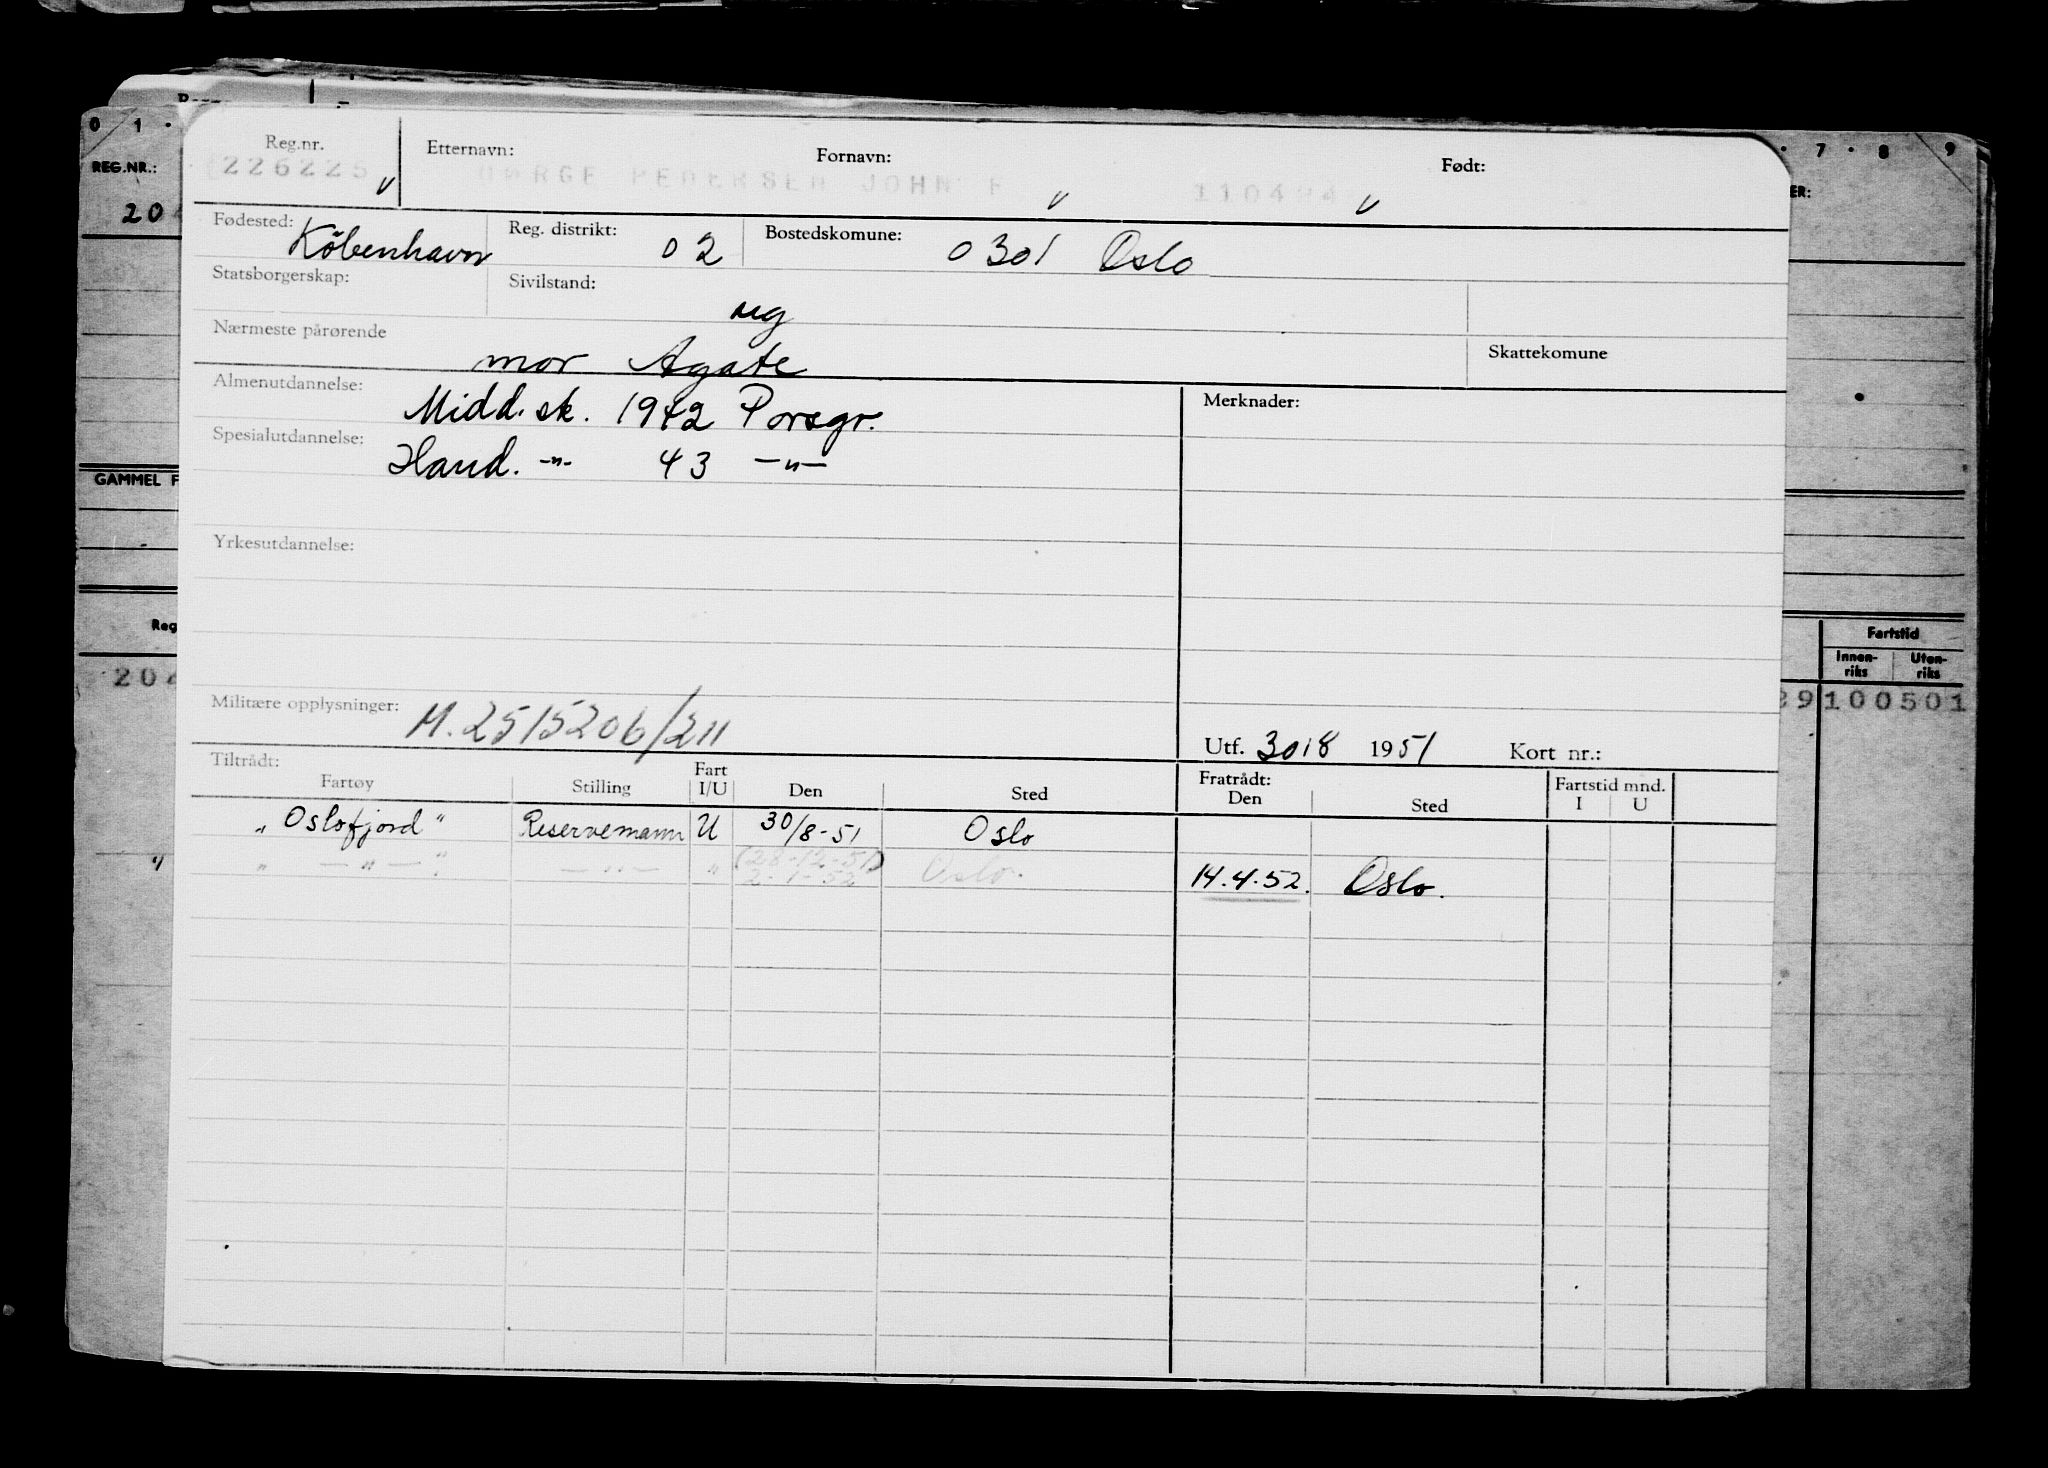 0 1 · · 7 · 8 9
REG.NR.: ER:
20
Reg.nr. Etternavn: Fornavn: Født:
226225 PEDERSEN JOHN
Fødested: København Reg. distrikt: 02 Bostedskomune: 0301 Oslo
Statsborgerskap: Sivilstand: ug
Nærmeste pårørende mor Agate Skattekomune
Almenutdannelse: Midd. sk. 1942 Porsgr. Merknader:
Spesialutdannelse: Hand. -"- 43 -"-
GAMMEL F
Yrkesutdannelse:
Reg Fartstid
Innen-riks Uten-riks
204 29 100501
Militære opplysninger: M.2515206/211
Utf. 30/8 1951 Kort nr.:
Tiltrådt: Fratrådt: Fartstid mnd.
Fartøy Stilling Fart I/U Den Sted Den Sted I U
"Oslofjord" Reservemann U 30/8-51 Oslo
" -"- " -"- " (28-12-51) 2-1-52 Oslo. 14.4.52. Oslo.